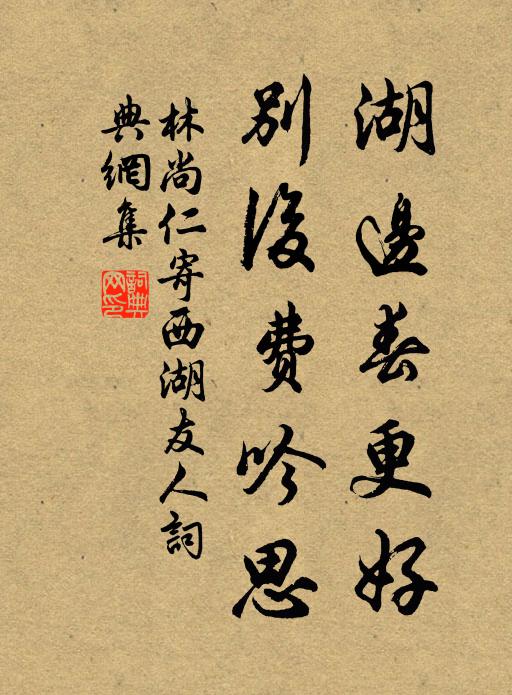 湖邊春更好
別後費吟思
林尚仁寄西湖友人詞
典網集
詞典網印